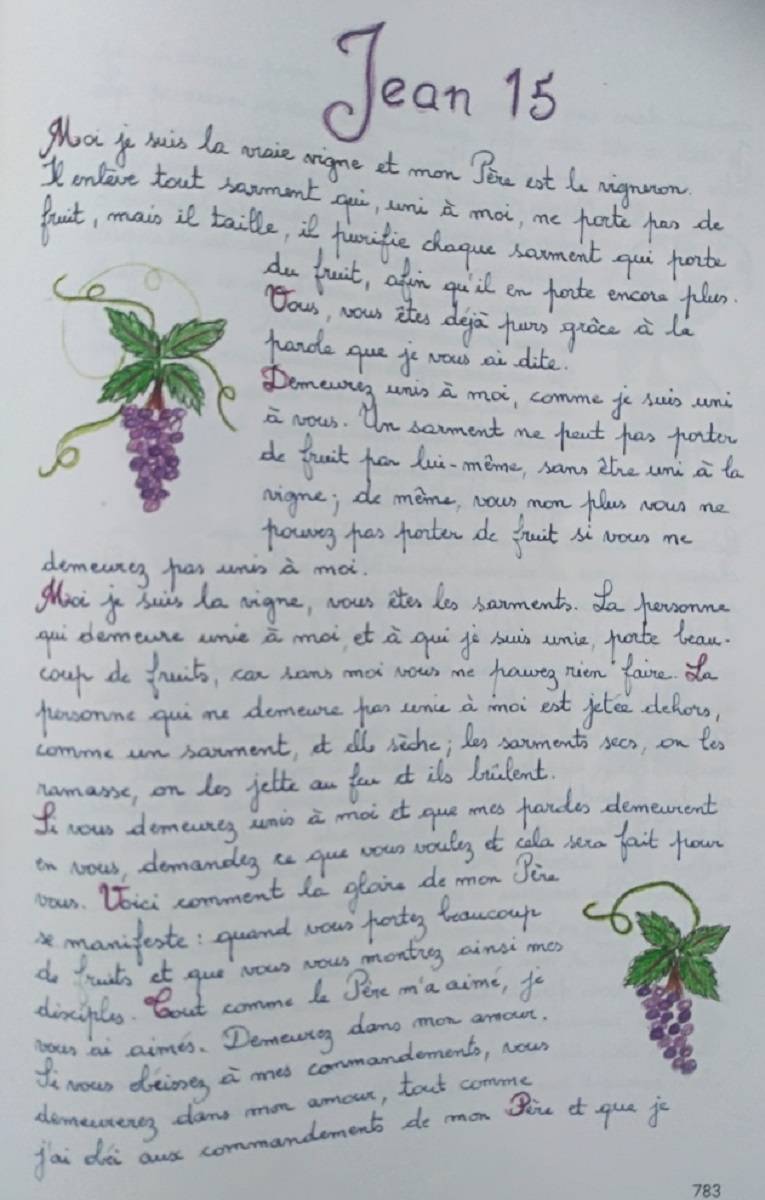 Jean 15
Moi je suis la vraie vigne et mon Père est le vigneron.
Il enlève tout sarment qui, uni à moi, ne porte pas de
fruit, mais il taille, il purifie chaque sarment qui porte
du fruit, afin qu'il en porte encore plus.
Vous, vous êtes déjà purs grâce à la
parole que je vous ai dite.
Demeurez unis à moi, comme je suis uni
à vous. Un sarment ne peut pas porter
de fruit par lui-même, sans être uni à la
vigne; de même, vous non plus vous ne
pouvez pas porter de fruit si vous ne
demeurez pas unis à moi.
Moi je suis la vigne, vous êtes les sarments. La personne
qui demeure unie à moi, et à qui je suis unie, porte beau-
coup de fruits, car sans moi vous ne pouvez rien faire. La
personne qui ne demeure pas unie à moi est jetée dehors,
comme un sarment, et elle sèche; les sarments secs, on les
ramasse, on les jette au feu et ils brûlent.
Si vous demeurez unis à moi et que mes paroles demeurent
en vous, demandez ce que vous voulez et cela sera fait pour
vous. Voici comment la gloire de mon Père
se manifeste: quand vous portez beaucoup
de fruits et que vous vous montrez ainsi mes
disciples. Tout comme le Père m'a aimé, je
vous ai aimés. Demeurez dans mon amour.
Si vous obéissez à mes commandements, vous
demeurerez dans mon amour, tout comme
j'ai obéi aux commandements de mon Père et que je
783